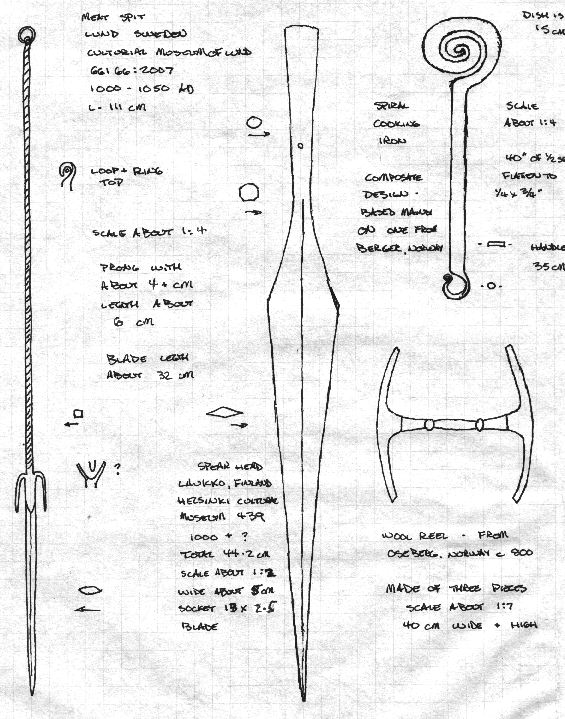 MEAT SPIT
LUND SWEDEN
CULTURIAL MUSEUM OF LUND
66166:2007
1000 - 1050 AD
L- 111 CM
LOOP + RING
TOP
SCALE ABOUT 1:4
PRONG WITH
ABOUT 4 + CM
LEGTH ABOUT
6 CM
BLADE LEGTH
ABOUT 32 CM
?
SPEAR HEAD
FINLAND
HELSINKI CULTURAL
MUSEUM 439
1000 + ?
TOTAL 44.2 CM
SCALE ABOUT 1:2
WIDE ABOUT 5 CM
SOCKET 13 X 2.5
BLADE
DISH IS
15 CM
SPIRAL
COOKING
IRON
COMPOSITE
DESIGN -
BASED
ON ONE FROM
BERGER, NORWAY
SCALE
ABOUT 1:4
40" OF 1/2 SQ
FLATTEN TO
1/4 X 3/4"
HANDLE
35 CM
WOOL REEL - FROM
OSEBERG, NORWAY C 800
MADE OF THREE PIECES
SCALE ABOUT 1:7
40 CM WIDE + HIGH